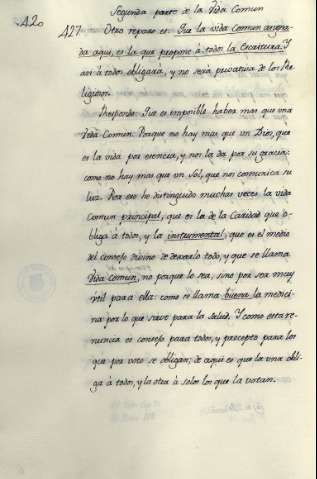 420
Segunda parte de la Vida Comun
427 Otro reparo es: Que la vida comun aconseja-
da aqui, es la que propone à todos la Escritura. Y
asi à todos obligarà, y no serà privativa de los Re-
ligiosos.
Responda: Que es imposible haber mas que una
Vida Comun. Porque no hay mas que un Dios, que
es la vida por esencia, y nos la da por su gracia:
como no hay mas que un Sol, que nos comunica su
luz. Por eso he distinguido muchas veces la vida
Comun principal, que es la de la Caridad que o-
bliga à todos, y la instrumental, que es el medio
del consejo divino de dexarlo todo, y que se llama
Vida comun, no porque lo sea, sino por ser muy
util para ella: como se llama buena la medici-
na por lo que sirve para la salud. Y como esta re-
nuncia es consejo para todos, y precepto para los
que por voto se obligan; de aqui es que la una obli-
ga à todos, y la otra à solos los que la votan.